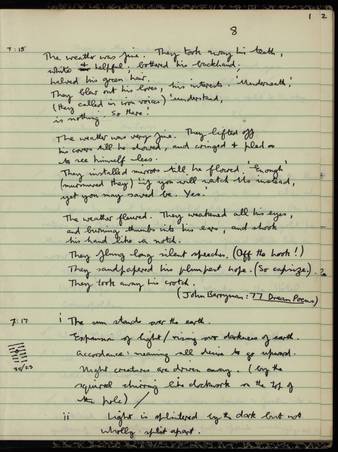 1 2
8
7:15
The weather was fine. They took away his teeth,
white & helpful; bothered his backhand;
halved his green hair.
They blew out his loves, his interests. 'Underneath,'
(they called in iron voices) 'understand,
is nothing. So there.'
The weather was very fine. They lifted off
his covers till he showed, and cringed & pled
to see himself less.
They installed mirrors till he flowed. 'Enough'
(murmured they) 'if you will watch Us instead,
yet you may saved be. Yes.'
The weather fleured. They weakened all his eyes,
and burning thumbs into his ears, and shook
his hand like a notch.
They flung long silent speeches. (Off the hook!)
They sandpapered his plumpest hope. (So capsize.)
They took away his crotch.
(John Berryman: 77 Dream Poems)
7:17
i The sun stands over the earth.
Expansion of light / rising over darkness of earth.
Accordance: meaning all desire to go upward.
Night creatures are driven away. (by the
squirrel churring like clockwork on the top of
the pole)
ii Light is splintered by the dark but not
wholly split apart.